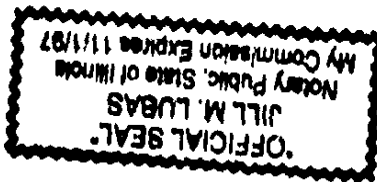 "OFFICIAL SEAL"
JILL M. LUBAS
Notary Public, State of Illinois
My Commission Expires 11/1/97